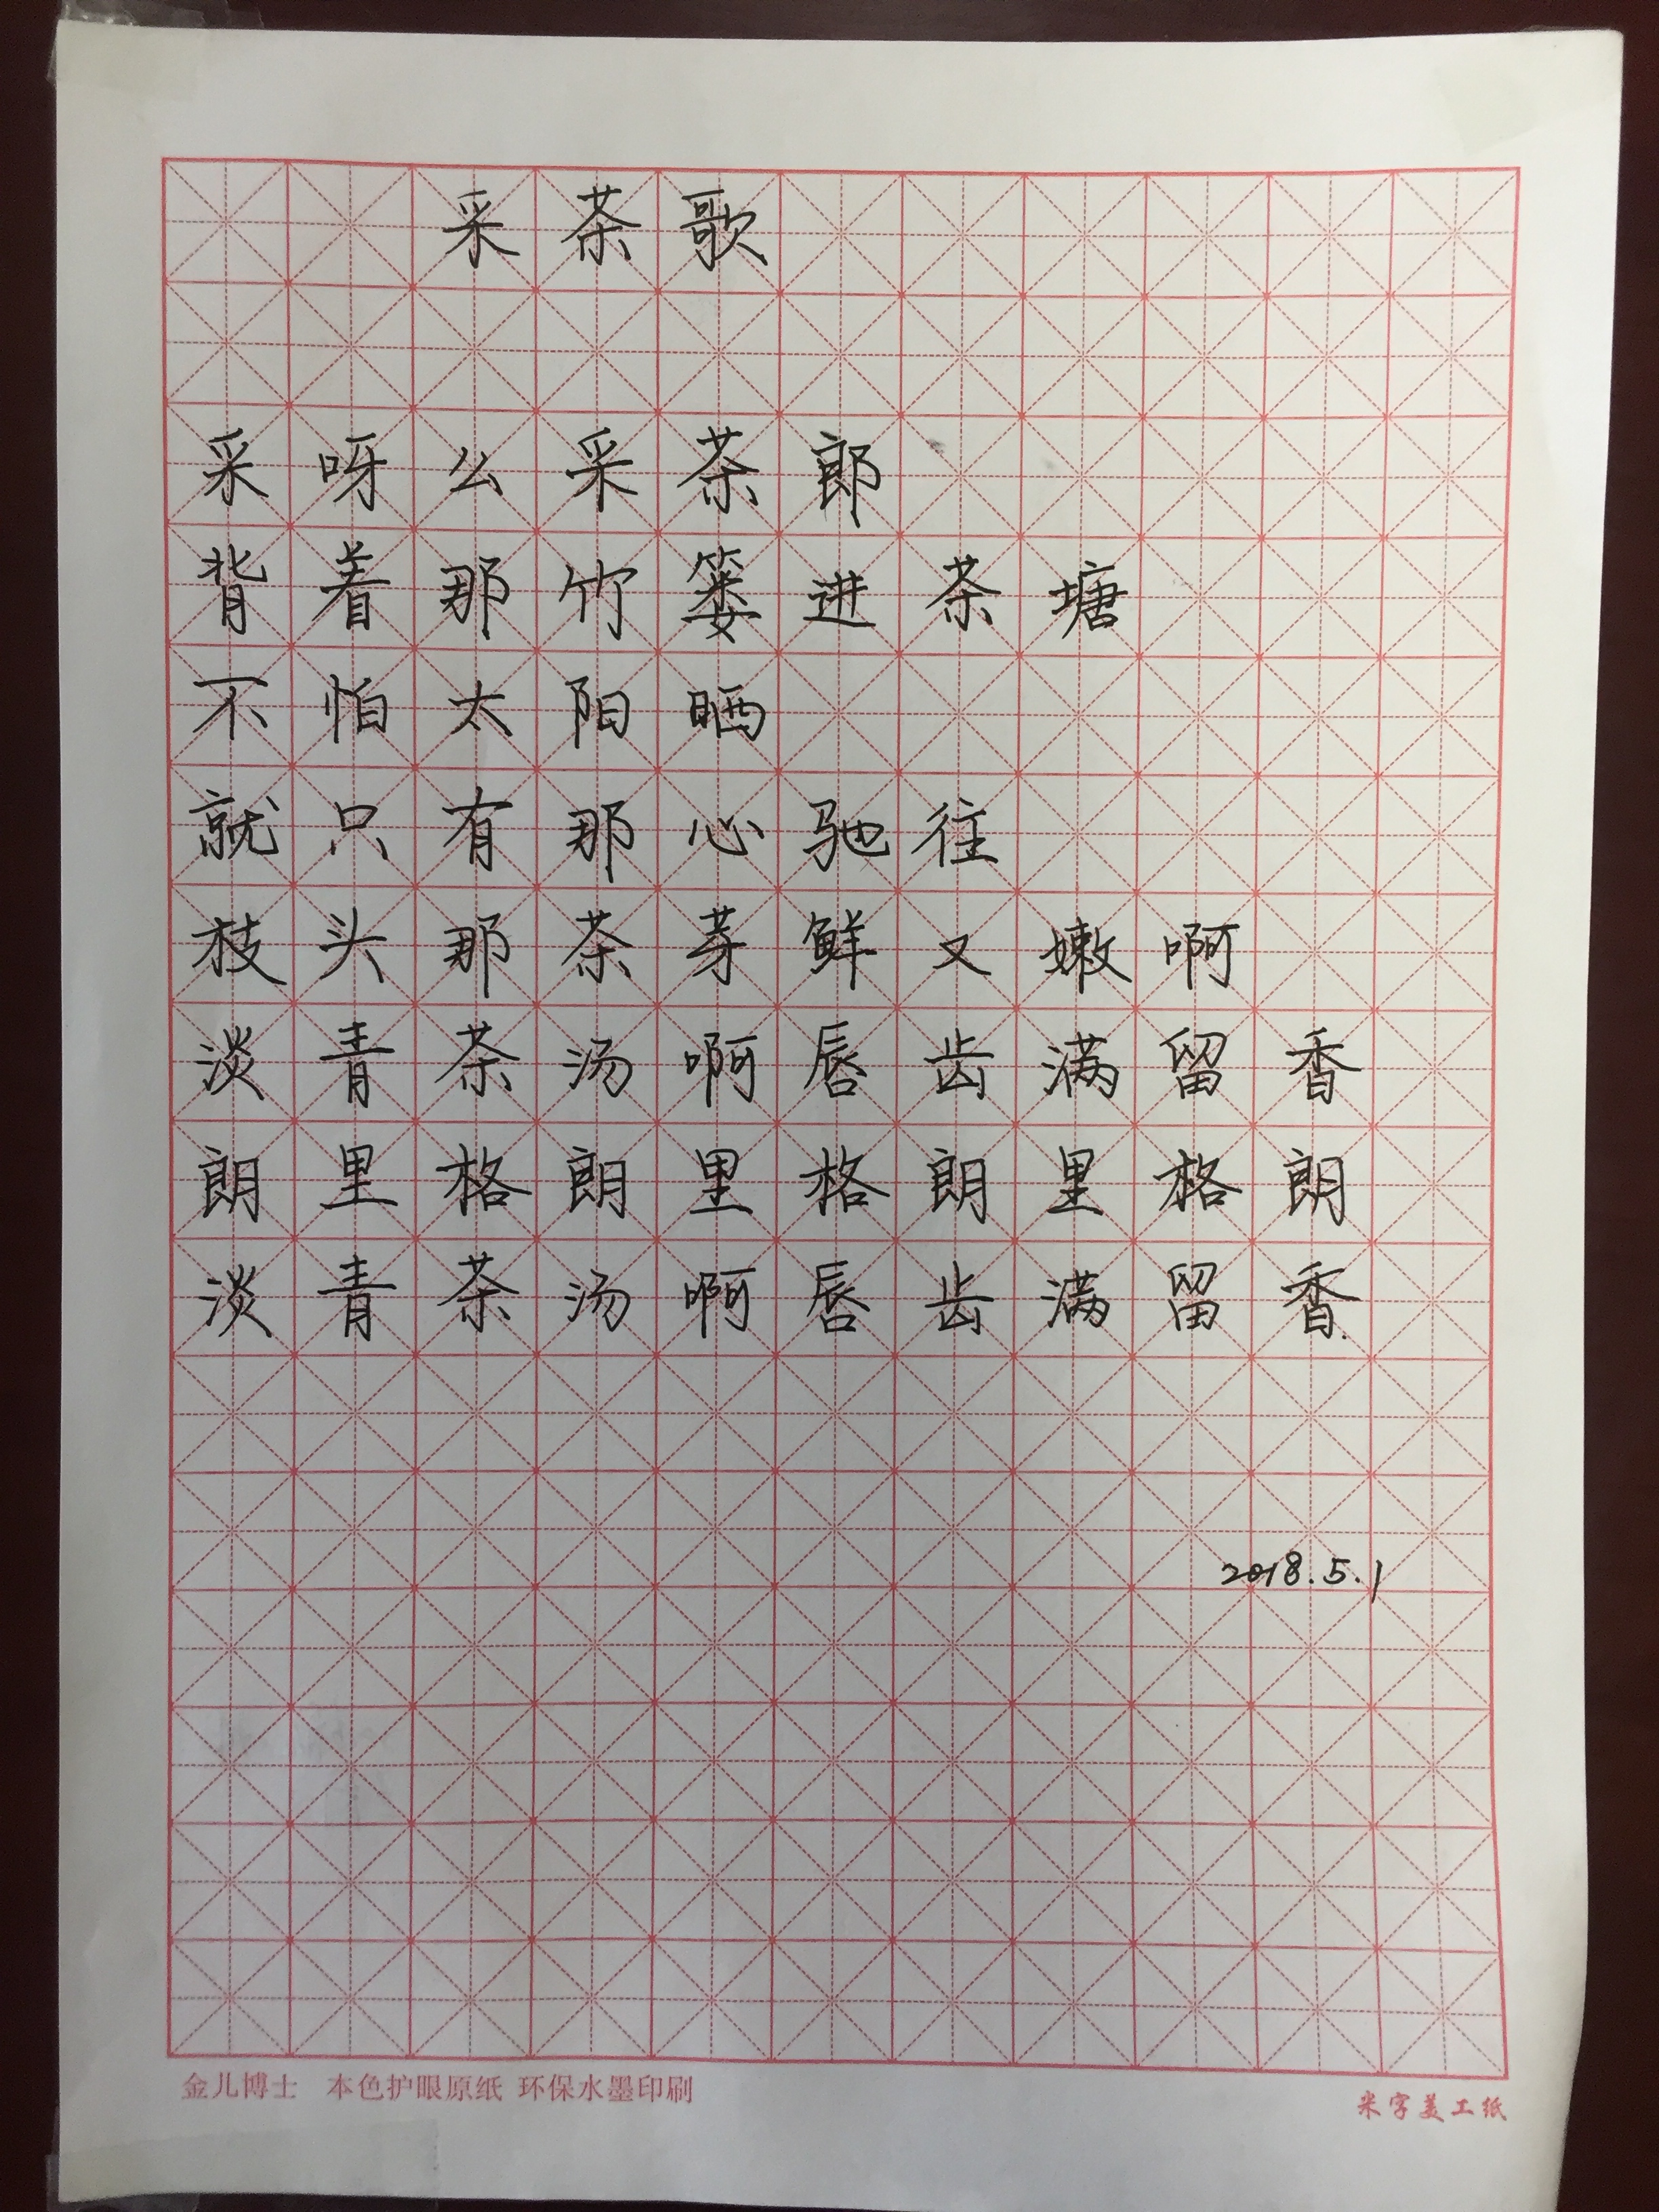 采茶歌
采呀么采茶郎
背着那竹篓进茶塘
不怕太阳晒
就只有那心驰往
枝头那茶芽鲜又嫩啊
淡青茶汤啊唇齿满留香
朗里格朗里格朗里格朗
淡青茶汤啊唇齿满留香.
2018.5.1
金儿博士 本色护眼原纸 环保水墨印刷
米字美工纸